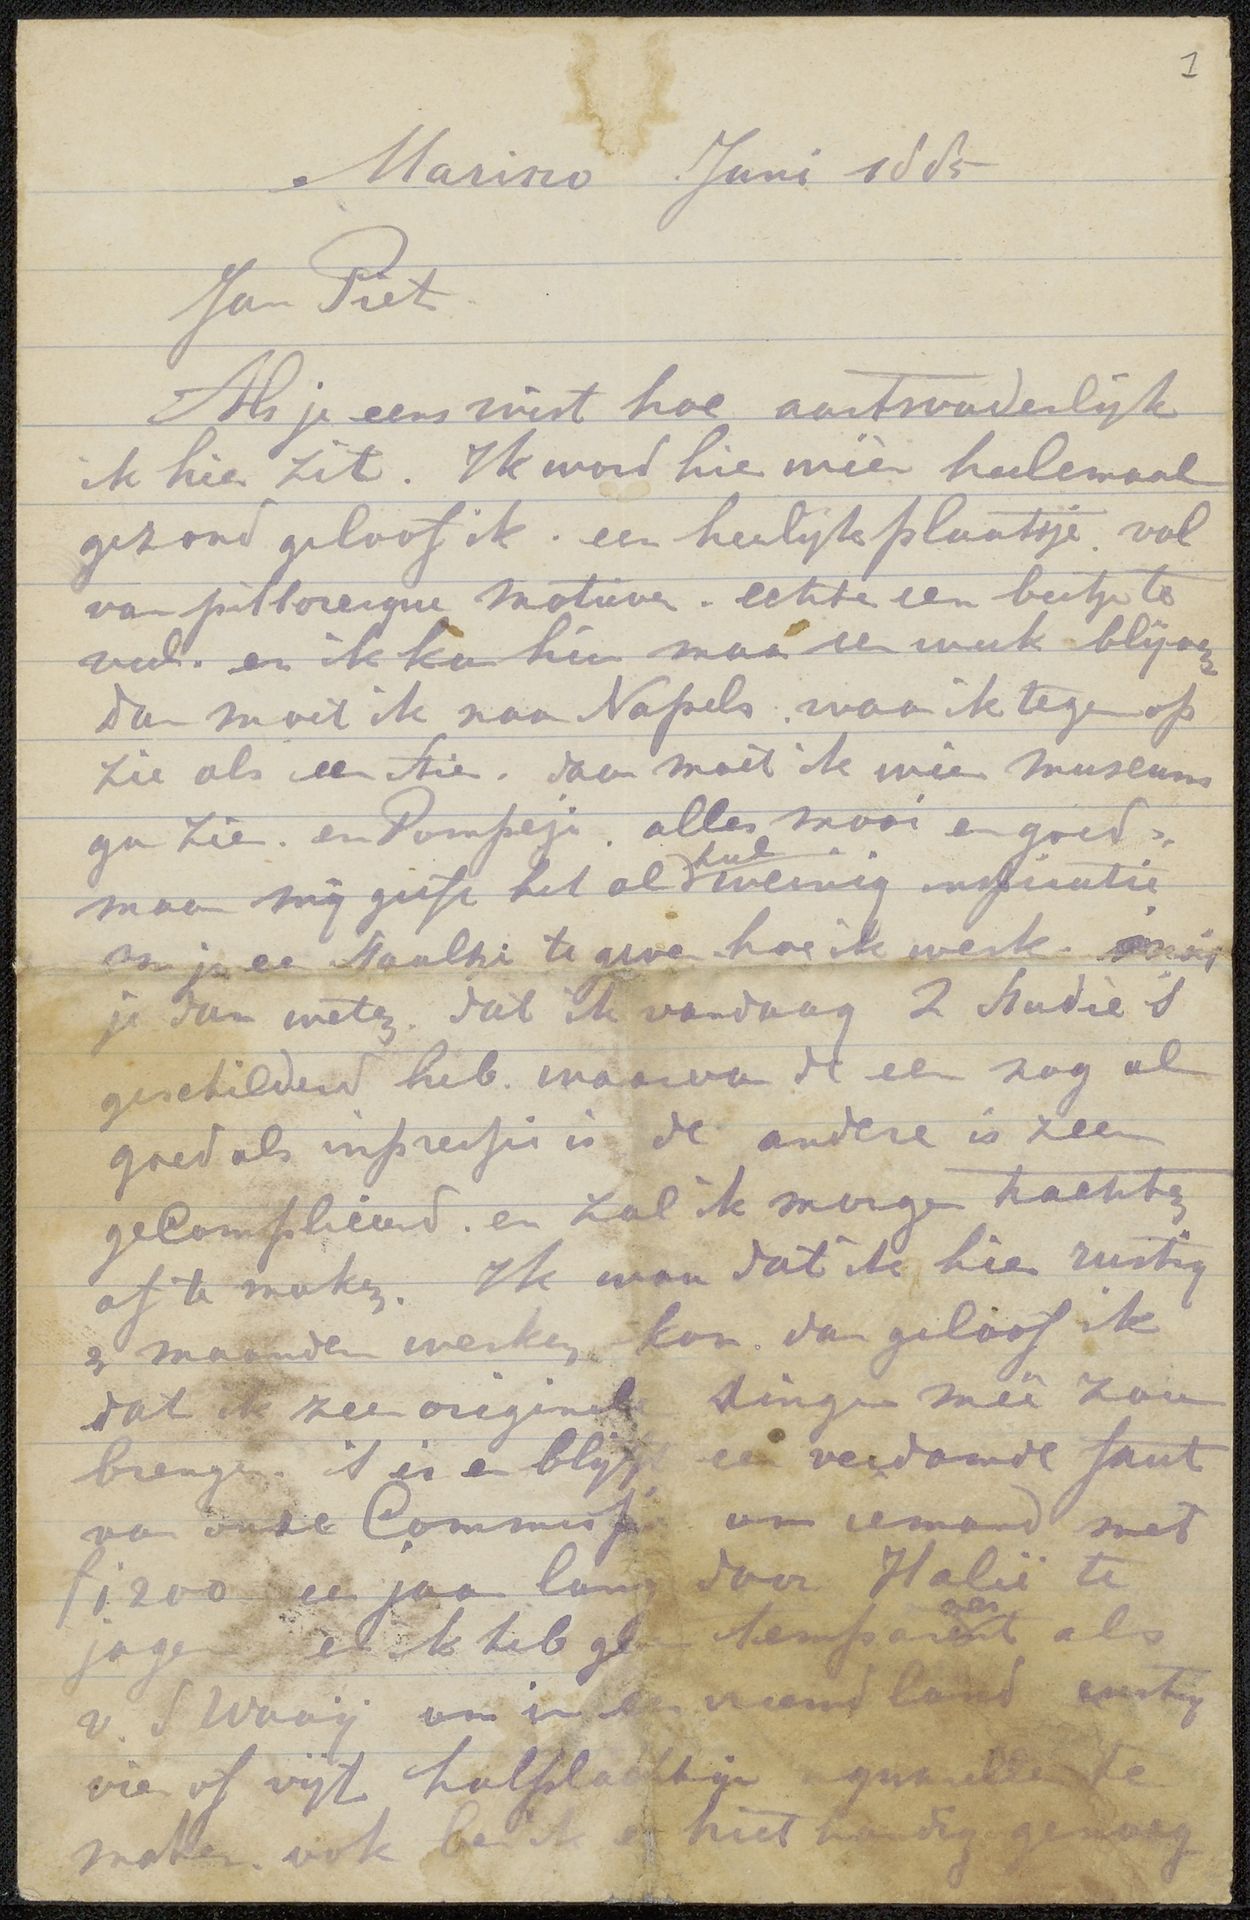 1
Marino Juni 1885
Jan Piet
Als je eens wist hoe aartsvaderlijk
ik hier zit. Ik word hier wéér heelemaal
gezond geloof ik. een heerlijk plaatsje. vol
van pittoresque motieven. echter een beetje te
veel. en ik kan hier maar een week blijven
dan moet ik naar Napels. waar ik tegen op
zie als een stier. daar moet ik weer museums
gaan zien. en Pompeji. alles mooi en goed.
maar mij geeft het al heel weinig inspiratie
om je een staaltje te geven hoe ik werk. moet
je dan weten. dat ik vandaag 2 studie's
geschilderd heb. waarvan de een nog al
goed als impressie is de andere is zeer
gecompliceerd. en zal ik morgen trachten
af te maken. Ik wou dat ik hier rustig
3 maanden werken kon. dan geloof ik
dat ik zeer origineele dingen meê zou
brengen. 't is en blijft een verdomde faut
van onze Commissie om iemand met
f 1200 een jaar lang door Italië te
jagen en ik heb geen temperament als
v. d Waaij om in een vreemd land rustig
vier of vijf halfslachtige aquarellen te
maken. ook ben ik er niet handig genoeg